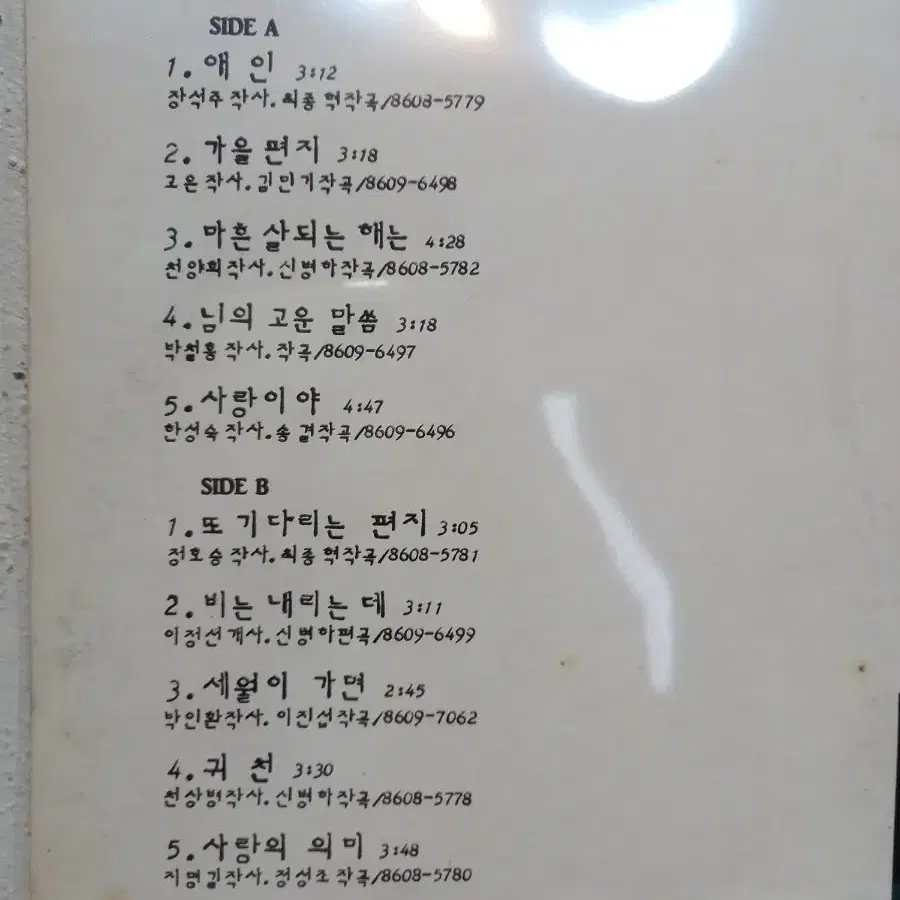 SIDE A
1. 애 인 3:12
장석주 작사. 최종 혁작곡/8608-5779
2. 가을 편지 3:18
고은 작사. 김민기작곡/8609-6498
3. 마흔 살되는 해는 4:28
천양희작사. 신병하작곡/8608-5782
4. 님의 고운 말씀 3:18
박철홍 작사. 작곡/8609-6497
5. 사랑이야 4:47
한성숙 작사. 송 결작곡/8609-6496
SIDE B
1. 또 기다리는 편지 3:05
정호승 작사. 최종 혁작곡/8608-5781
2. 비는 내리는 데 3:11
이정선 개사. 신병하편곡/8609-6499
3. 세월이 가면 2:45
박인환작사. 이진섭작곡/8609-7062
4. 귀 천 3:30
천상병작사. 신병하작곡/8608-5778
5. 사랑의 의미 3:48
지명길작사. 정성조 작곡/8608-5780